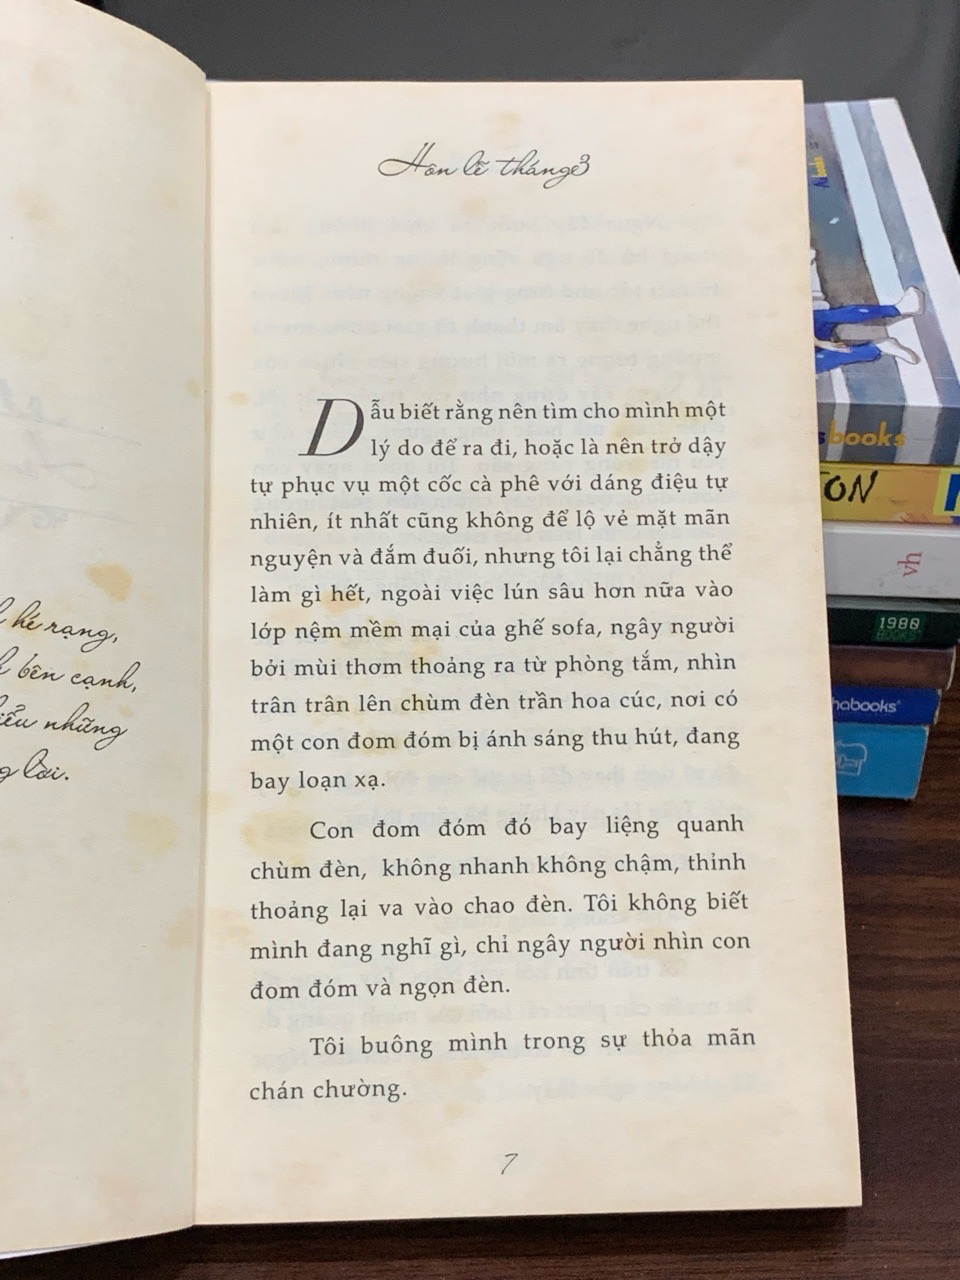 Hôn lễ tháng 3
Dẫu biết rằng nên tìm cho mình một
lý do để ra đi, hoặc là nên trở dậy
tự phục vụ một cốc cà phê với dáng điệu tự
nhiên, ít nhất cũng không để lộ vẻ mặt mãn
nguyện và đắm đuối, nhưng tôi lại chẳng thể
làm gì hết, ngoài việc lún sâu hơn nữa vào
lớp nệm mềm mại của ghế sofa, ngây người
bởi mùi thơm thoảng ra từ phòng tắm, nhìn
trân trân lên chùm đèn trần hoa cúc, nơi có
một con đom đóm bị ánh sáng thu hút, đang
bay loạn xạ.
Con đom đóm đó bay liệng quanh
chùm đèn, không nhanh không chậm, thỉnh
thoảng lại va vào chao đèn. Tôi không biết
mình đang nghĩ gì, chỉ ngây người nhìn con
đom đóm và ngọn đèn.
Tôi buông mình trong sự thỏa mãn
chán chường.
7
hé rạng,
bên cạnh,
những
lời.
books
TON
vh
1980
BOOKS
habooks